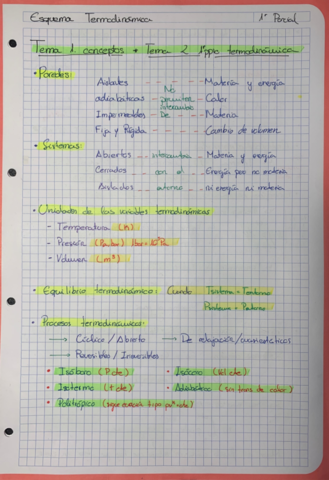 Esquema Termodinámica 1º Parcial
Tema 1 conceptos + Tema 2 1ºppio termodinámica
• Paredes:
Aisladas - - - - - Materia y energía
No
adiabáticas - permiten - Calor
intercambio
Impermeables - De - - Materia
Fija y Rígida - - - - - Cambio de volumen
• Sistemas:
Abiertos - - intercambia - Materia y energía
Cerrados - - con el - - Energía pero no materia
Aislados - - externo - - ni energía ni materia
• Unidades de las variables termodinámicas
- Temperatura (K)
- Presión (Pascal)
- Volumen (m³)
• Equilibrio termodinámico: Cuando Tsistema = Tentorno
Psistema = Pentorno
• Procesos termodinámicos:
→ Cíclico / Abierto → De relajación / cuasiestáticos
→ Reversibles / Irreversibles
• Isóbaro (P cte) • Isócoro (Vol cte)
• Isotermo (t cte) • Adiabático (sin trans de calor)
• Politrópico (sigue ecuación tipo